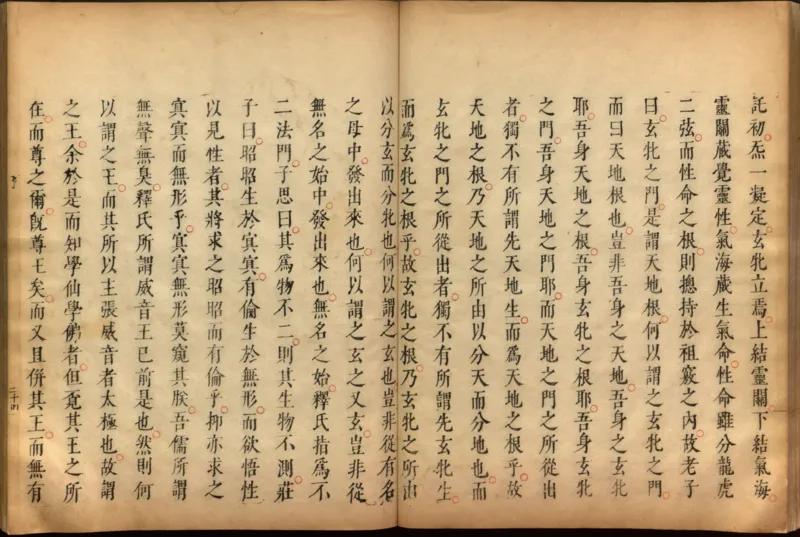 託初炁一凝定玄牝立焉上結靈關下結氣海
靈關藏覺靈性氣海藏生氣命性命雖分龍虎
二弦而性命之根則揔持於祖竅之內故老子
曰玄牝之門是謂天地根何以謂之玄牝之門
而曰天地根也豈非吾身之天地吾身之玄牝
耶吾身天地之根吾身玄牝之根耶吾身玄牝
之門吾身天地之門耶而天地之門之所從出
者獨不有所謂先天地生而爲天地之根乎故
天地之根乃天地之所由以分天而分地也而
玄牝之門之所從出者獨不有所謂先玄牝生
而爲玄牝之根乎故玄牝之根乃玄牝之所由
以分玄而分牝也何以謂之玄也豈非從有名
之母中發出來也何以謂之玄之又玄豈非從
無名之始中發出來也無名之始釋氏指爲不
二法門子思曰其爲物不二則其生物不測莊
子曰昭昭生於冥冥有倫生於無形而欲悟性
以見性者其將求之昭昭而有倫乎抑亦求之
冥冥而無形乎冥冥無形莫窺其朕吾儒所謂
無聲無臭釋氏所謂威音王已前是也然則何
以謂之王而其所以主張威音者太極也故謂
之王余於是而知學仙學佛者但覓其王之所
在而尊之爾旣尊王矣而又且併其王而無有
二十四